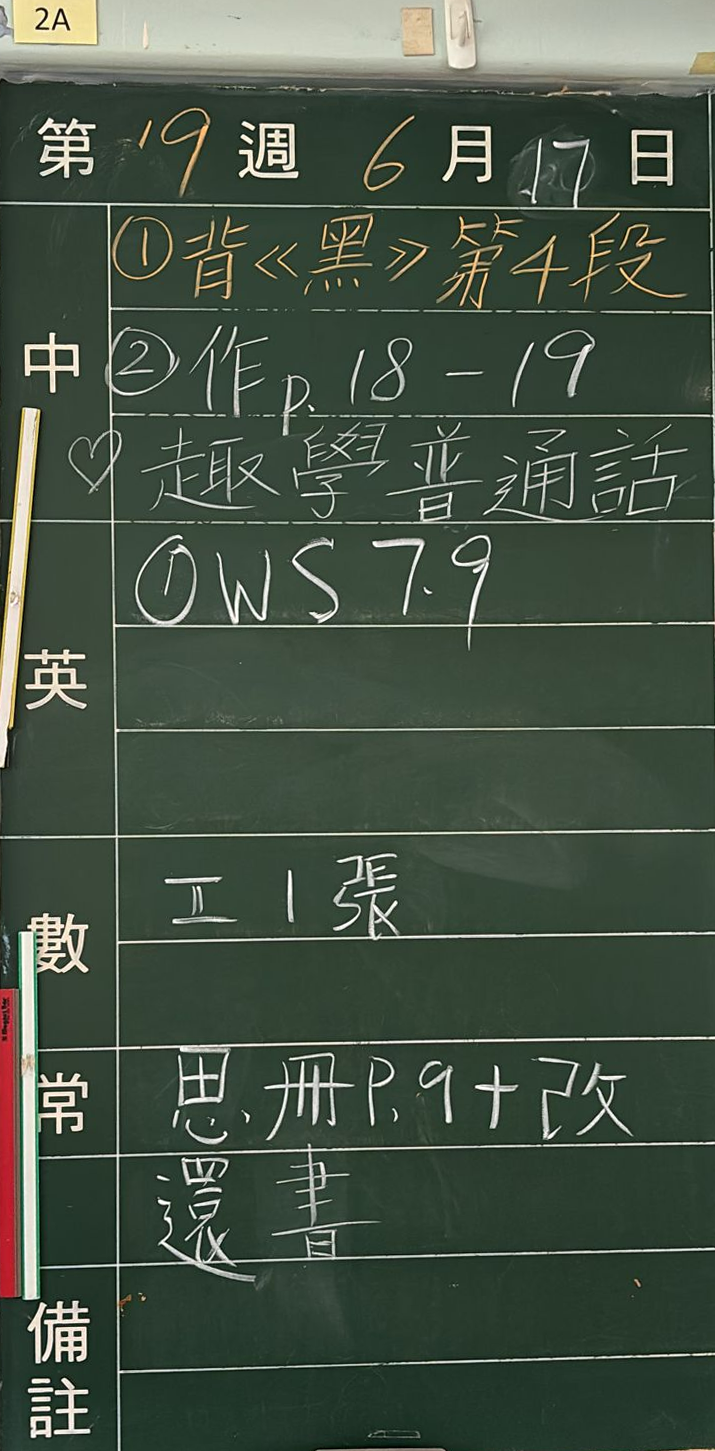 2A
第 19 週 6 月 17 日
中
①背《黑》第4段
②作p.18-19
♡趣學普通話
英
①WS 7.9
數
工1張
常
思.冊P.9+改
還書
備註